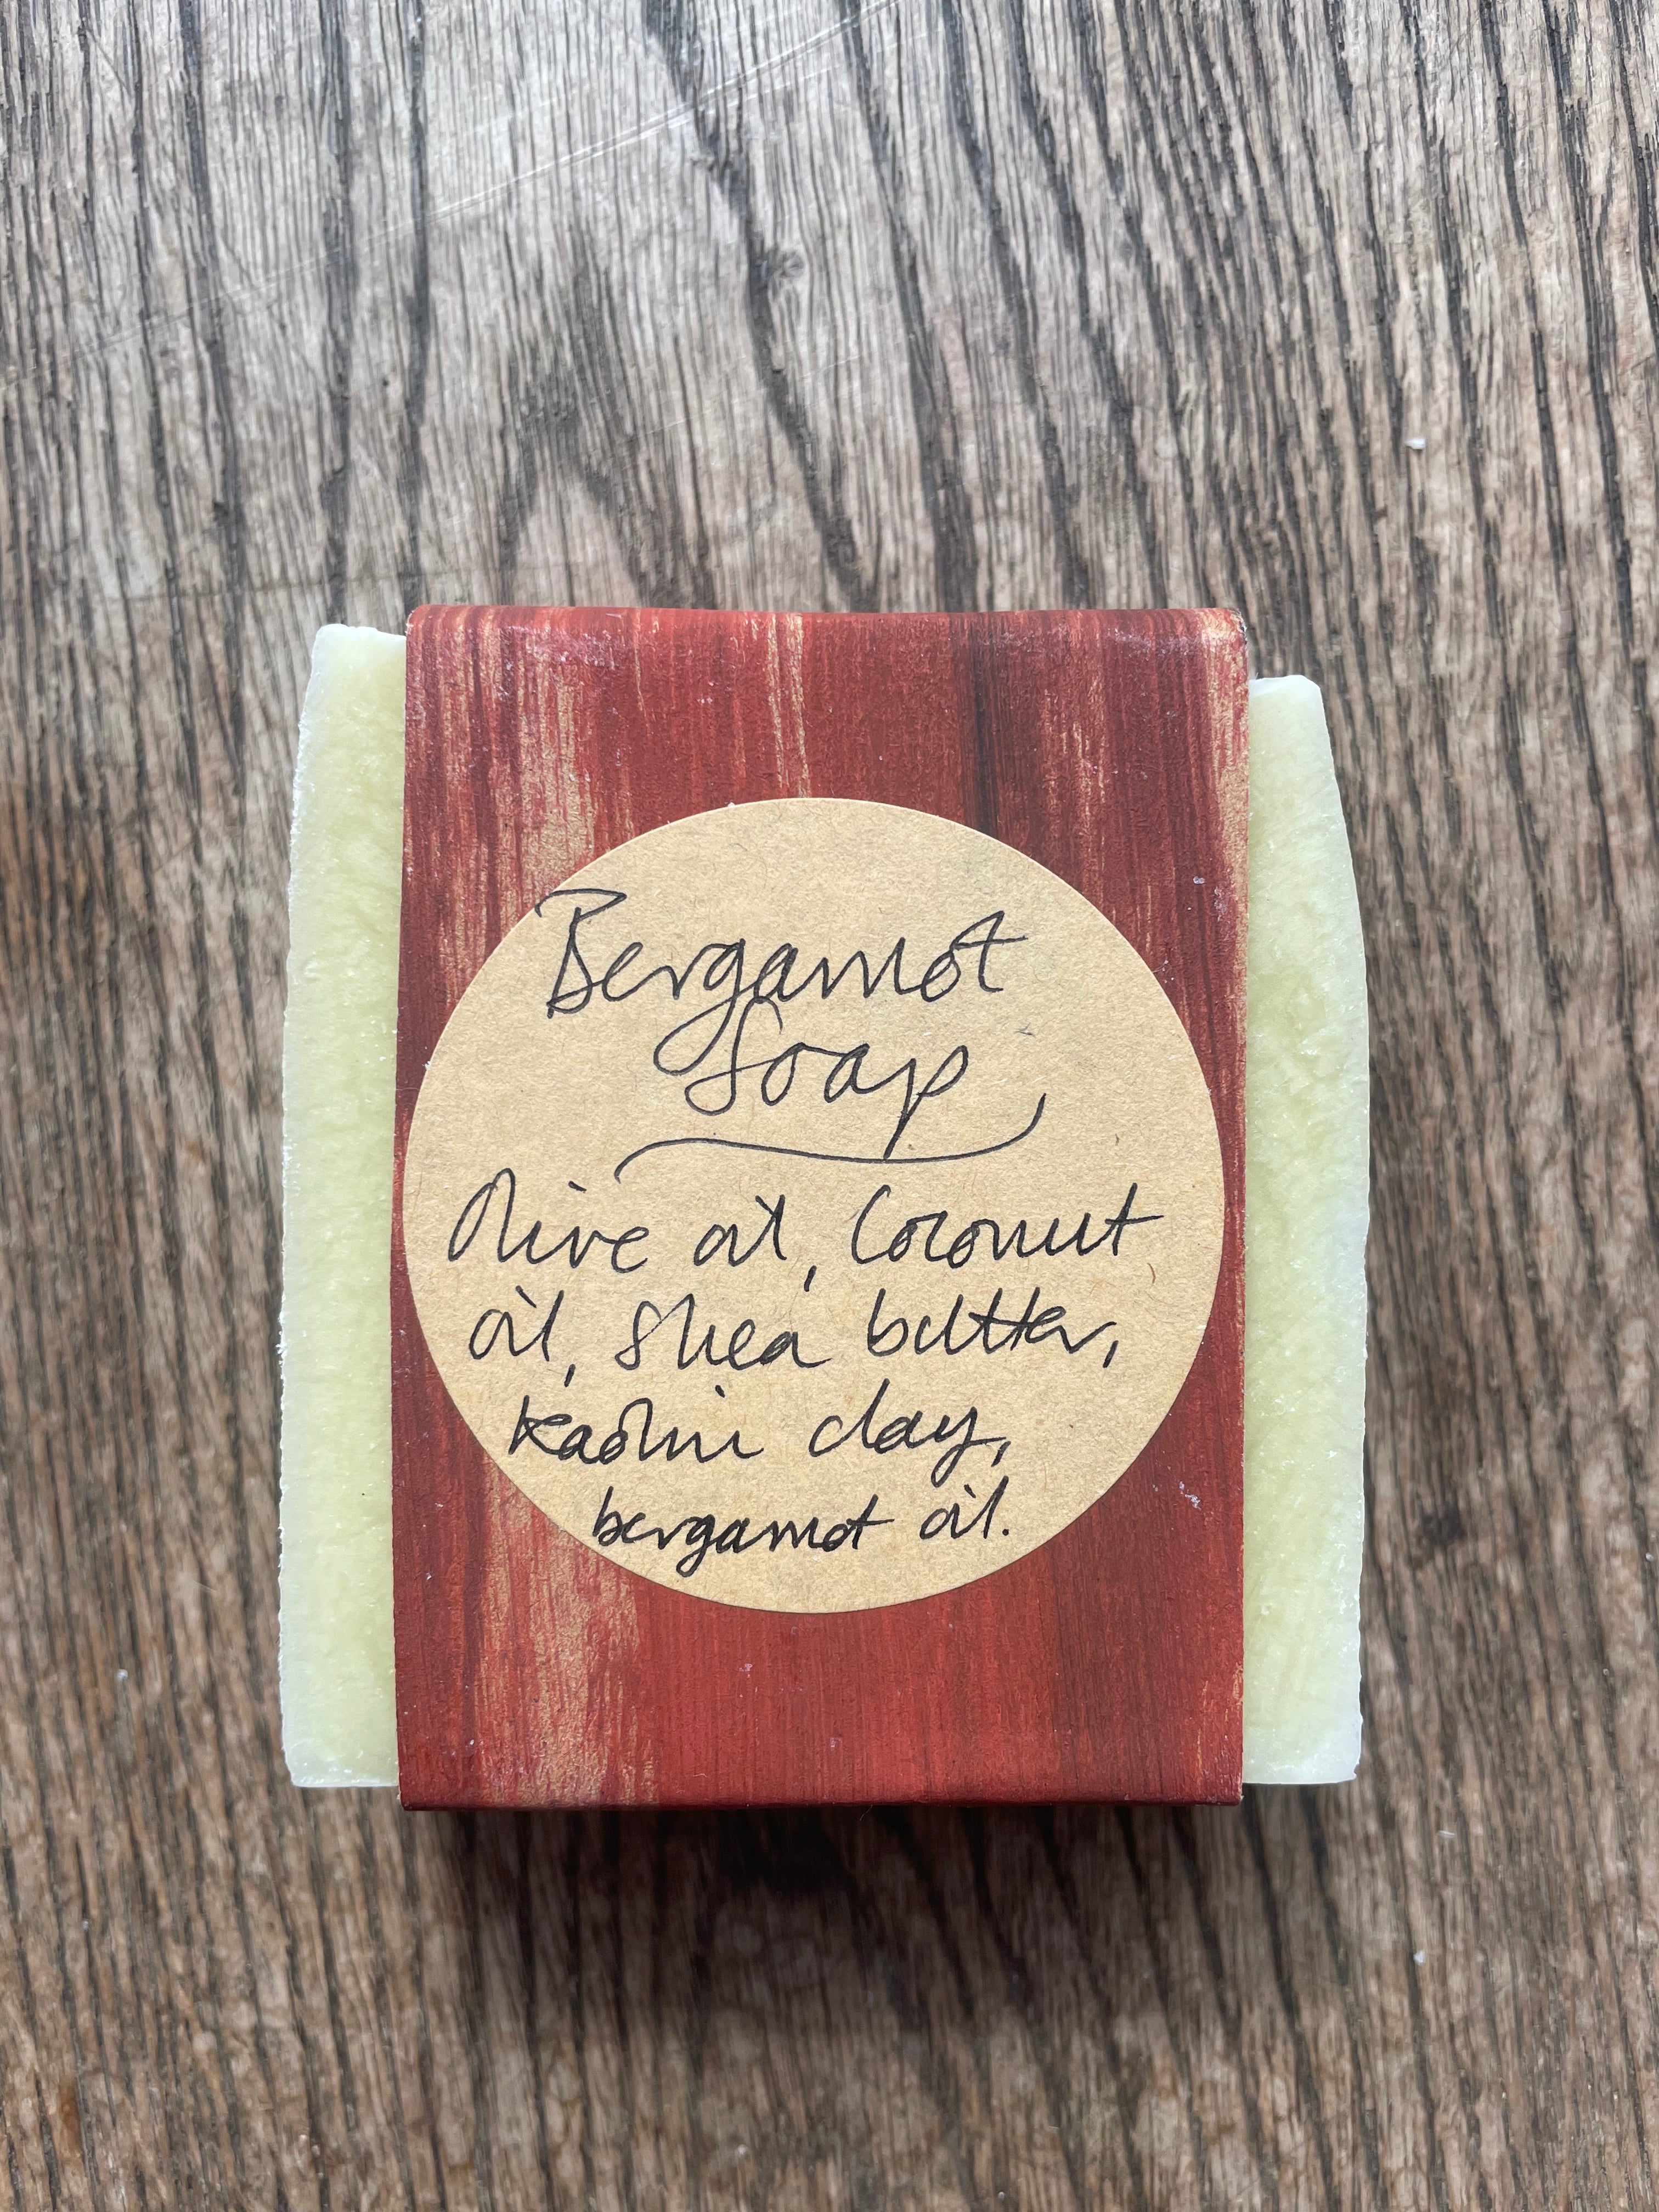 Bergamot
Soap
Olive oil, Coconut
oil, Shea butter,
Kaolin clay,
bergamot oil.